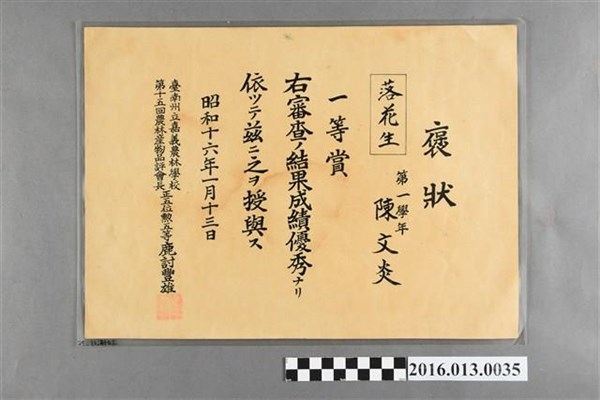 褒狀
落花生
第一學年
陳文炎
一等賞
右審查ノ結果成績優秀ナリ
依ツテ茲ニ之ヲ授與ス
昭和十六年一月十三日
臺南州立嘉義農林學校
第十五回農林産物品評會長
正五位勲五等鹿討豐雄
2016.013.0035